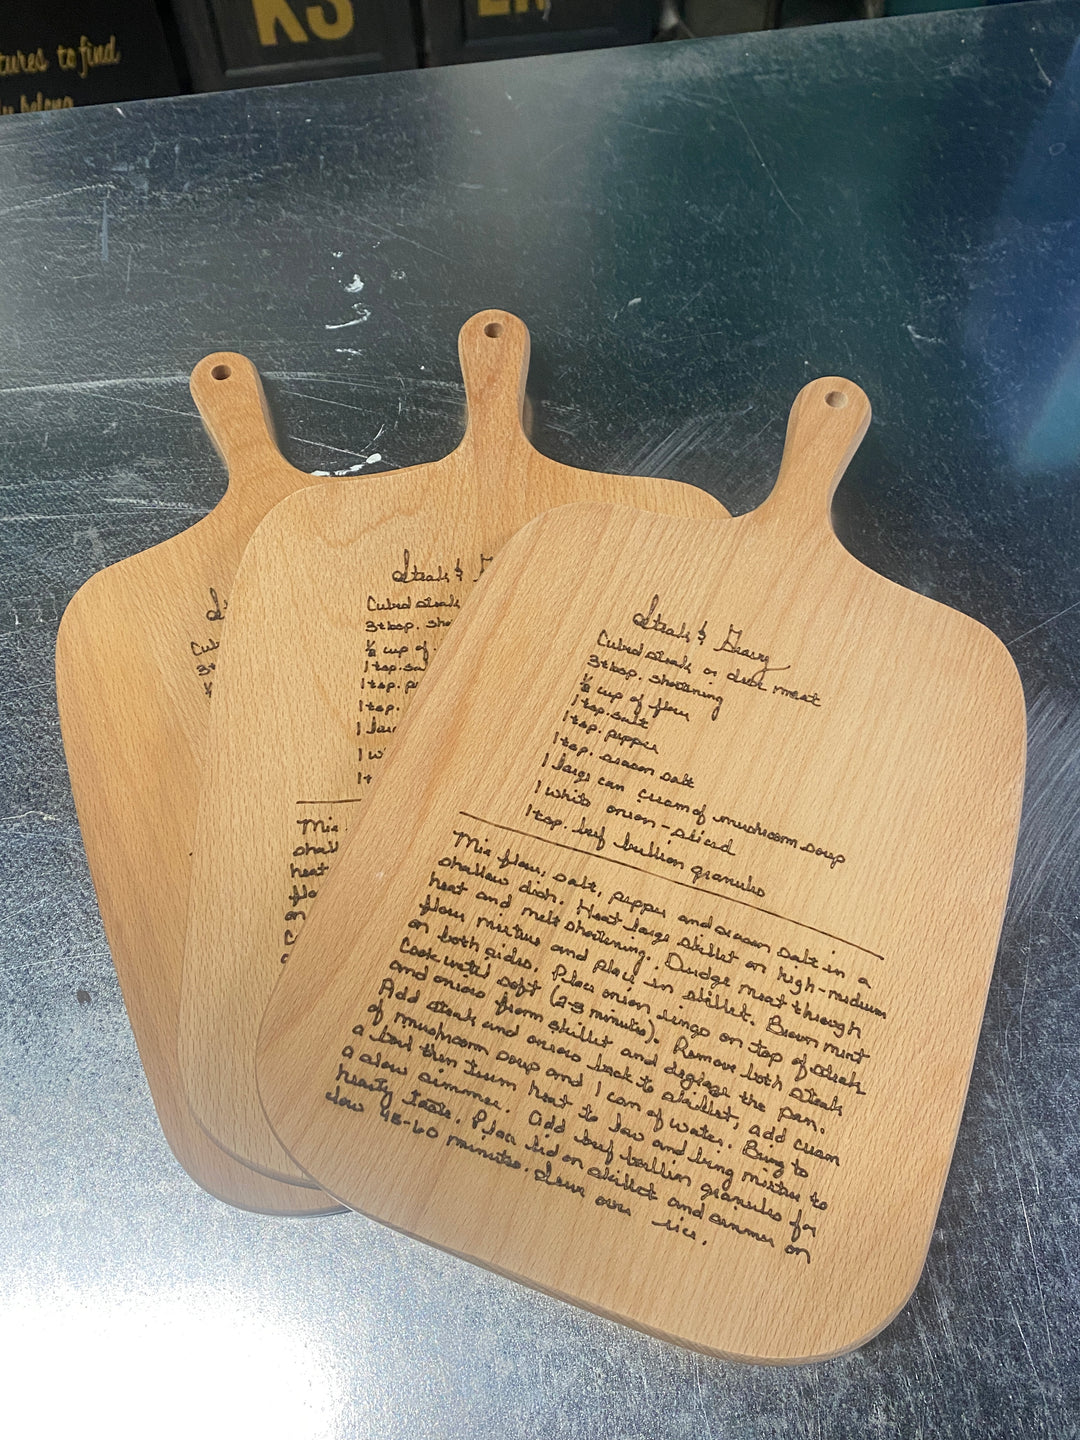 tures to find
ly belong
KS
Steak & Gravy
Cubed steak or deer meat
3 tbsp. shortening
½ cup of flour
1 tsp. salt
1 tsp. pepper
1 tsp. season salt
1 large can cream of mushroom soup
1 white onion - sliced
1 tsp. beef bullion granules
Mix flour, salt, pepper and season salt in a
shallow dish. Heat large skillet on high-medium
heat and melt shortening. Dredge meat through
flour mixture and place in skillet. Brown meat
on both sides. Place onion rings on top of steak
Cook until soft (2-3 minutes). Remove both steak
and onions from skillet and deglaze the pan.
Add steak and onions back to skillet, add cream
of mushroom soup and 1 can of water. Bring to
a boil then turn heat to low and bring mixture to
a slow simmer. Add beef bullion granules for
hearty taste. Place lid on skillet and simmer on
low 45-60 minutes. Serve over rice.
Steak &
Cubed steak
3 tbsp. sho
½ cup of
1 tsp. sal
1 tsp. p
1 tsp.
1 lar
1 w
1 t
Mix
shall
heat
flo
on
C
Cub
3 t